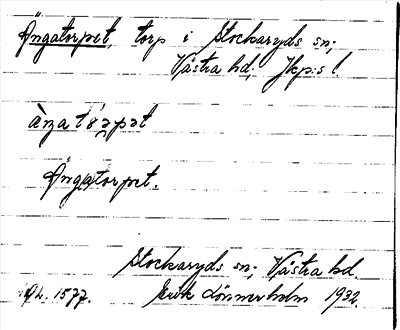 Ängatorpet, torp i Stockaryds sn;
Västra hd, Jkp:s l.
äŋatɷ̀rpət
Ängatorpet.
Stockaryds sn; Västra hd.
AL. 1577. Erik Lönnerholm 1932.